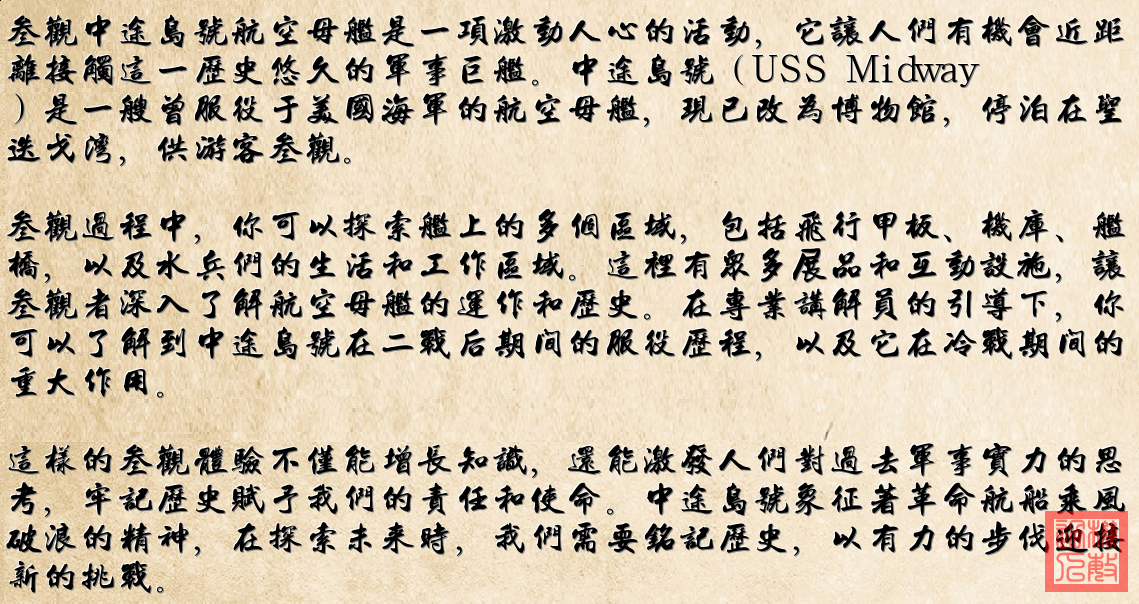 叄觀中途島號航空母艦是一項激動人心的活動，它讓人們有機會近距
離接觸這一歷史悠久的軍事巨艦。中途島號（USS Midway
）是一艘曾服役于美國海軍的航空母艦，現已改為博物館，停泊在聖
迭戈灣，供游客叄觀。
叄觀過程中，你可以探索艦上的多個區域，包括飛行甲板、機庫、艦
橋，以及水兵們的生活和工作區域。這裡有眾多展品和互動設施，讓
叄觀者深入了解航空母艦的運作和歷史。在專業講解員的引導下，你
可以了解到中途島號在二戰后期间的服役歷程，以及它在冷戰期间的
重大作用。
這樣的叄觀體驗不僅能增長知識，還能激發人們對過去軍事實力的思
考，牢記歷史賦予我們的責任和使命。中途島號象征著革命航船乘風
破浪的精神，在探索未来時，我們需要銘記歷史，以有力的步伐迎接
新的挑戰。